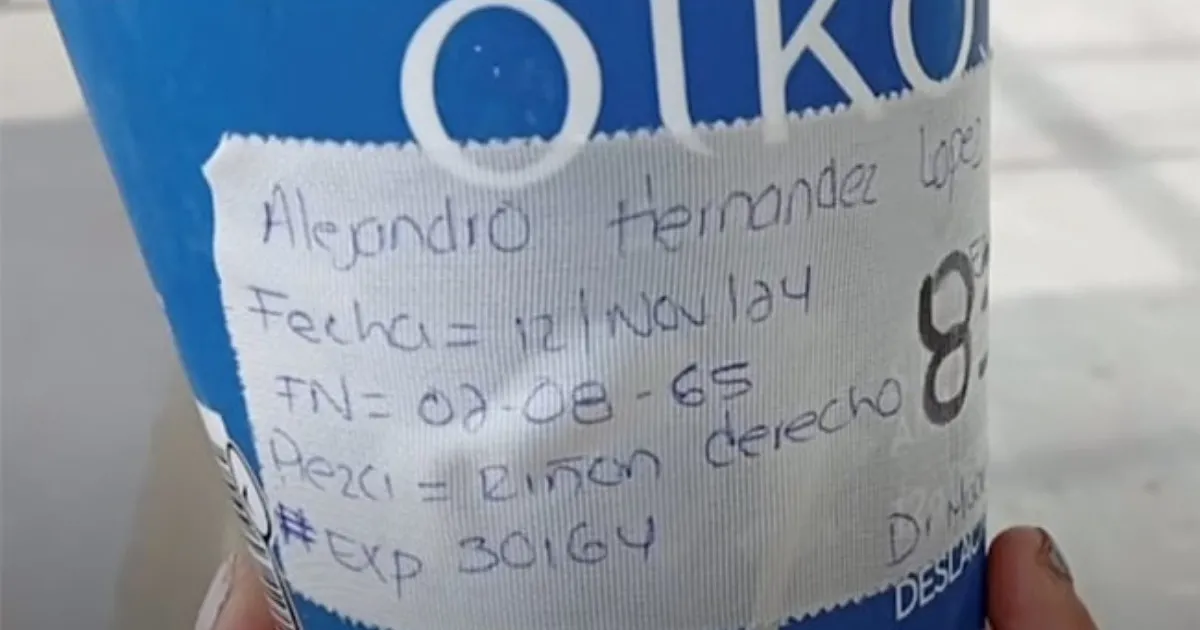 OIKO
Alejandro Hernandez Lopez
Fecha = 12/Nov/24
FN = 02-08-65
8
Pieza = Riñon derecho
#Exp 30164
Dr
DESLAC